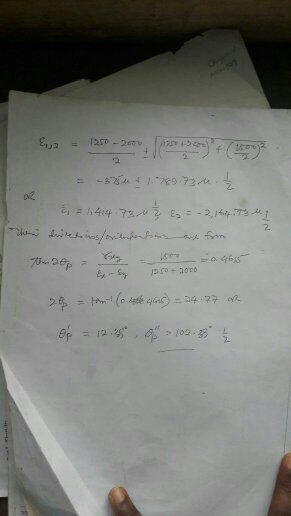 ε1,2 = (1250 - 2000)/2 ± √((1250 + 2000)/2)² + (1500/2)²
= -375μ ± 1,789.73 μ. 1/2
OR
ε1 = 1,414.73 μ 1/2 ε2 = -2,164.73 μ 1/2
Their directions/orientations are from
tan 2θp = γxy/(εx - εy) = 1500/(1250 + 2000) = 0.4615
2θp = tan⁻¹(0.4615) = 24.77 OR
θp' = 12.39°, θp'' = 102.39° . 1/2